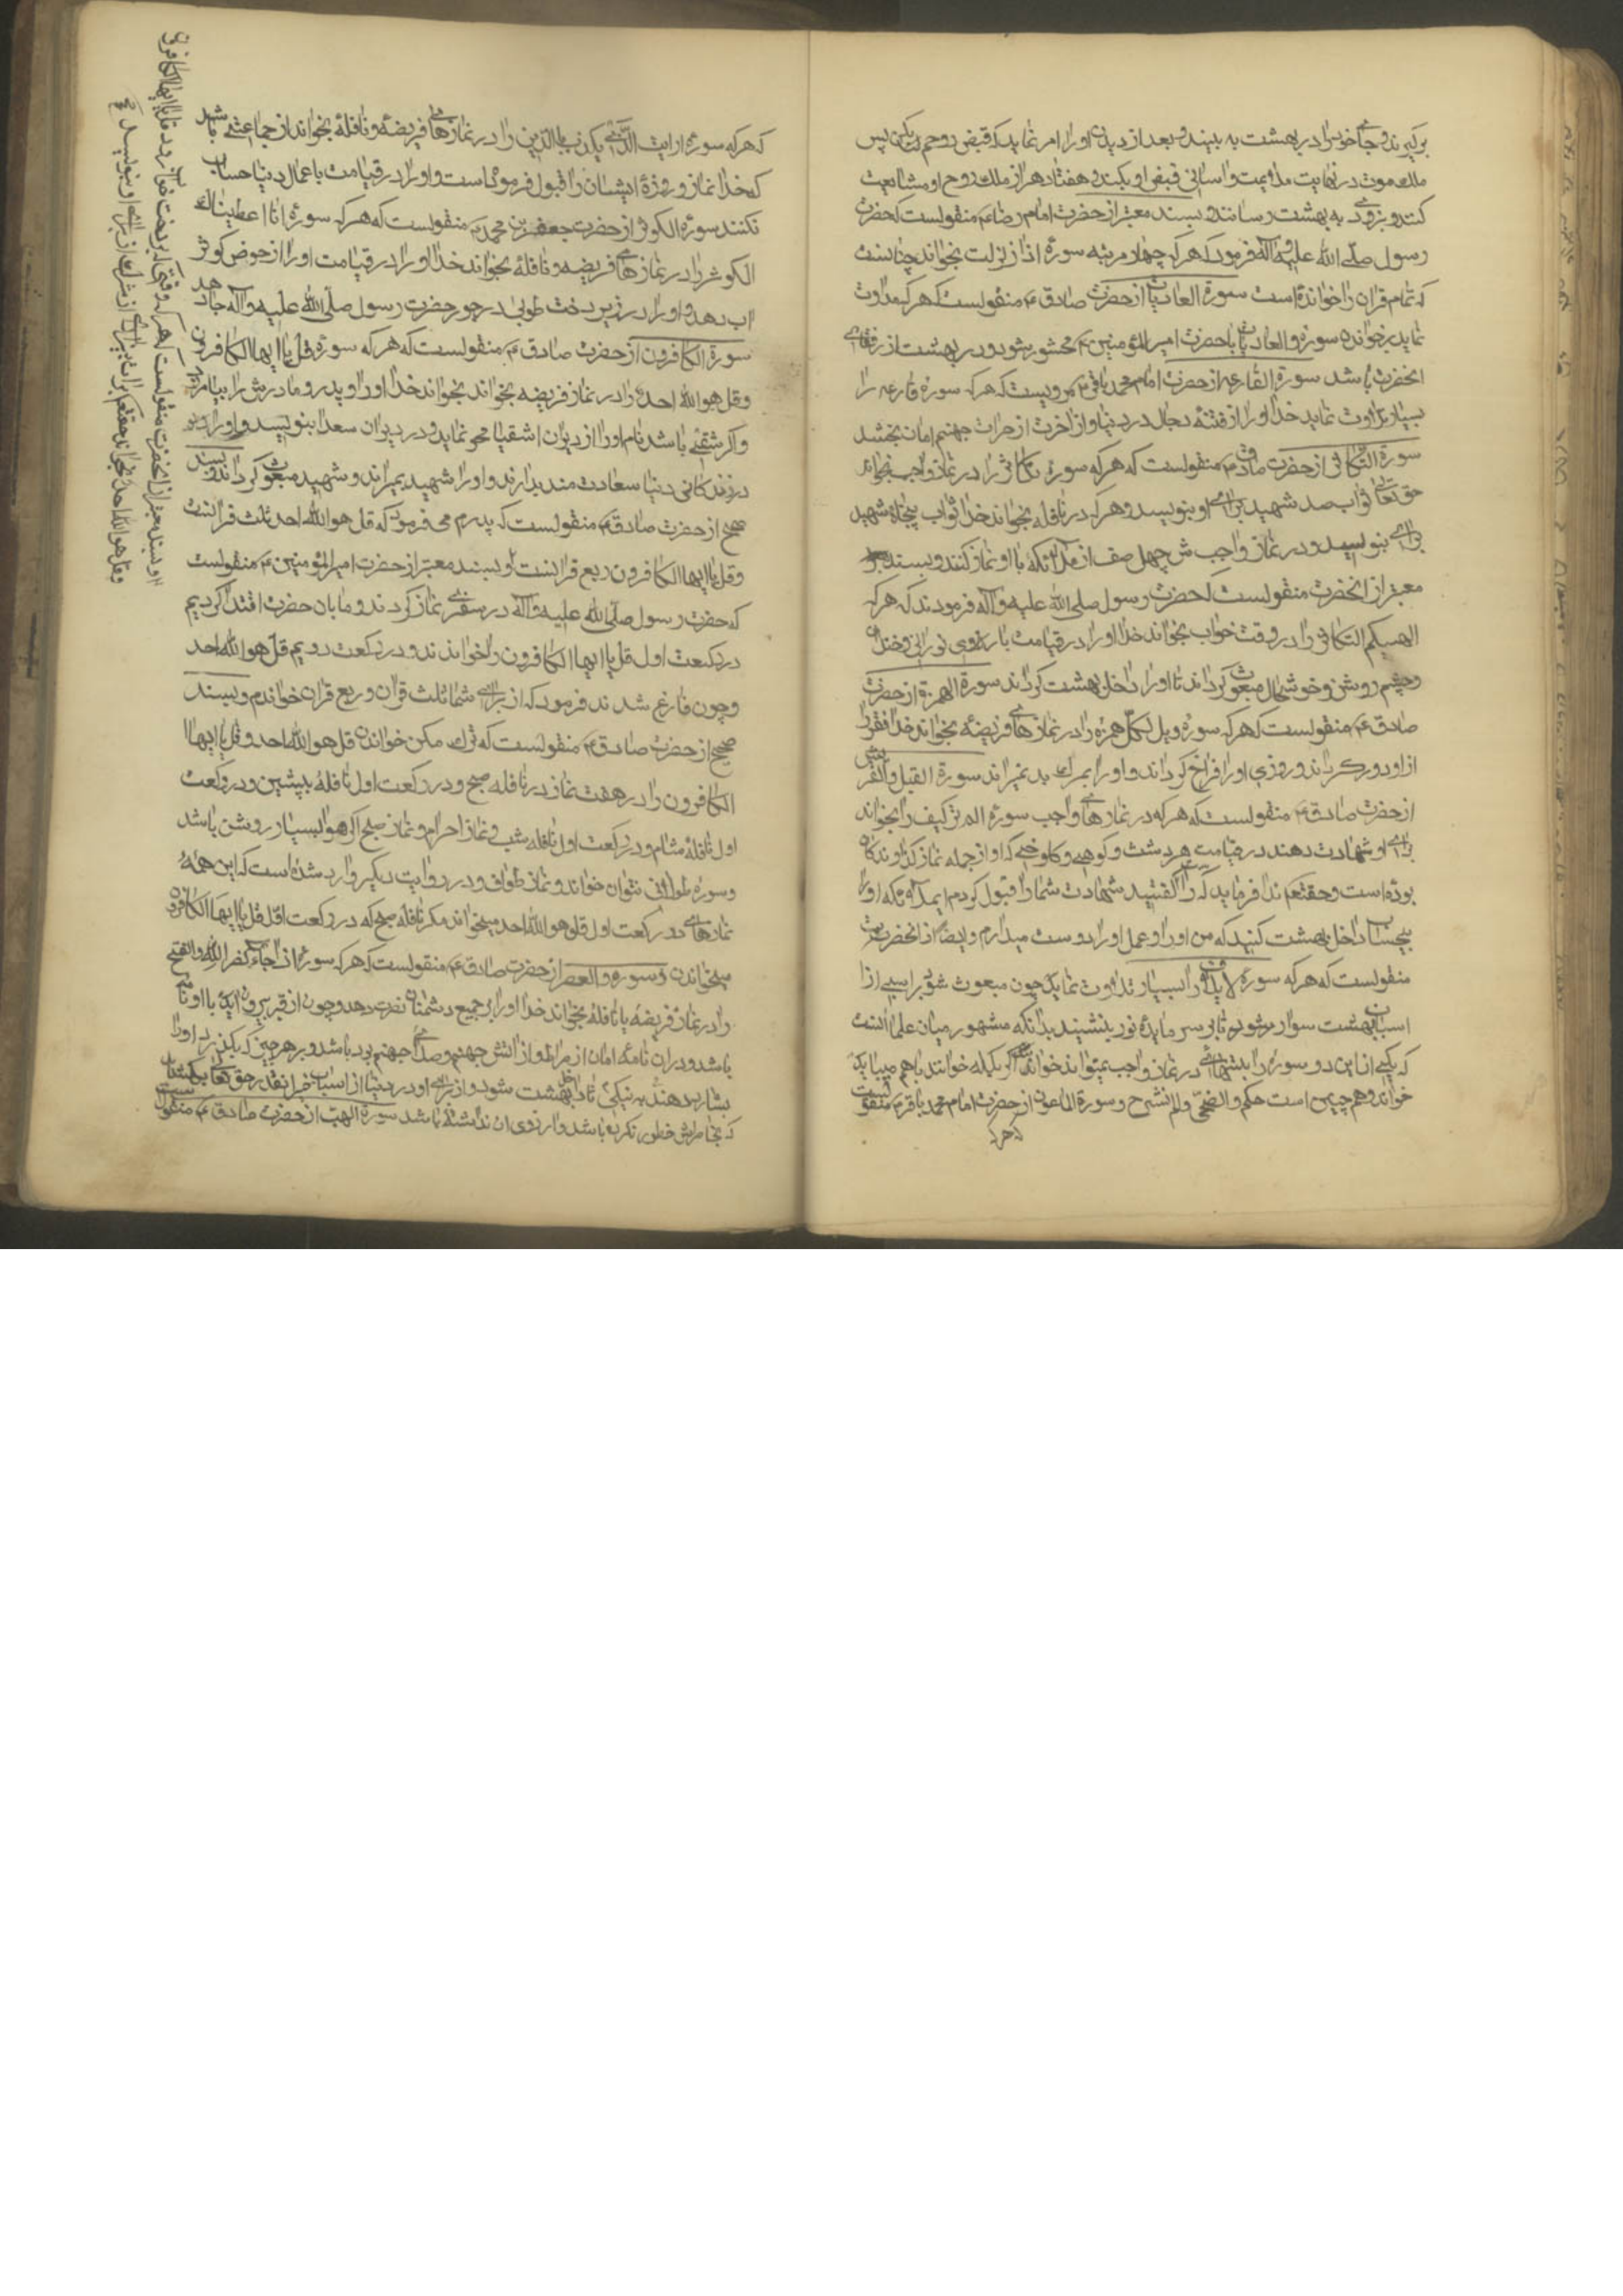 برگیرند و جای خود را در بهشت به بیند و بعد از دیدن او را امر نماید که قبض روحم بکن پس
ملک موت در نهایت ملایمت و اسانی قبض او بکند و هفتاد هزار ملک روح او مشایعت
کنند و بزودی به بهشت رسانند و بسند معتبر از حضرت امام رضا ع منقولست که حضرت
رسول صلی الله علیه و آله فرمود که هر که چهار مرتبه سوره اذا زلزلت بخواند چنانست
که تمام قران را خوانده است سورة العادیات از حضرت صادق ع منقولست که هر که مداومت
نماید بر خواندن سوره والعادیات با حضرت امیر المؤمنین ع محشور شود و در بهشت از رفقای
انحضرت باشد سورة القارعه از حضرت امام محمد باقر ع مرویست که هر که سوره قارعه را
بسیار تلاوت نماید خدا او را از فتنه دجال در دنیا و از اخرت از حرارت جهنم امان بخشد
سورة التکاثر از حضرت صادق ع منقولست که هر که سوره تکاثر را در نماز واجب بخواند
حق تعالی ثواب صد شهید برای او بنویسد و هر که در نافله بخواند خدا ثواب پنجاه شهید
برای بنویسد و در نماز واجبش چهل صف از ملائکه با او نماز کنند و بسند
معتبر از انحضرت منقولست که حضرت رسول صلی الله علیه و آله فرمودند که هر که
الهیکم التکاثر را در وقت خواب بخواند خدا او را در قیامت با روی نورانی و خندان
و چشم روشن و خوشحال مبعوث گرداند تا او را داخل بهشت گرداند سورة الهمزة از حضرت
صادق ع منقولست که هر که سوره ویل لکل همزه را در نمازهای فریضه بخواند خدا فقر را
از او دور گرداند و روزی او را فراخ گرداند و او را بمرگ بد نمیراند سورة الفیل و القریش
از حضرت صادق ع منقولست که هر که در نمازهای واجب سوره الم تر کیف را بخواند
برای او شهادت دهند در قیامت هر دشت و کوهی و کلوخی که او از جمله نماز کذارندکان
بوده است و حقتعم ندا فرماید که راست گفتید شهادت شما را قبول کردم ای ملائکه او را
بیحساب داخل بهشت کنید که من او را و عمل او را دوست میدارم و ایضا از انحضرت
منقولست که هر که سوره لایلاف را بسیار تلاوت نماید چون مبعوث شود بر اسبی از
اسبان بهشت سوار شود تا بر سر مایده نور بنشیند بدانکه مشهور میان علما انست
که یکی از این دو سوره را بتنهائی در نماز واجب نمیتواند خواند اگر یکی خوانند باهم میباید
خواند و هم چنین است حکم والضحی و الم نشرح و سورة الماعون از حضرت امام محمد باقر ع منقولست
که هر که
که هر که سوره ارایت الذی یکذب بالدین را در نمازهای فریضه و نافله بخواند از جماعتی باشد
که خدا نماز و روزه ایشان را قبول فرموده است و او را در قیامت با عمال دنیا حساب
نکنند سوره الکوثر از حضرت جعفر بن محمد ع منقولست که هر که سوره انا اعطیناک
الکوثر را در نمازهای فریضه و نافله بخواند خدا او را در قیامت او را از حوض کوثر
اب دهد و او را در زیر درخت طوبی در جوار حضرت رسول صلی الله علیه و آله جا دهد
سورة الکافرون از حضرت صادق ع منقولست که هر که سوره قل یا ایها الکافرون
و قل هو الله احد را در نماز فریضه بخواند بخواند خدا او را و پدر و مادرش را بیامرزد
و اگر شقی باشد نام او را از دیوان اشقیا محو نماید و در دیوان سعدا بنویسد و او را
در زندکانی دنیا سعادت مند بدارند و او را شهید بمیراند و شهید مبعوث گرداند و بسند
صحیح از حضرت صادق ع منقولست که پدرم می فرمود که قل هو الله احد ثلث قرانست
و قل یا ایها الکافرون ربع قرانست و بسند معتبر از حضرت امیر المؤمنین ع منقولست
که حضرت رسول صلی الله علیه و آله در سفری نماز کردند و ما بان حضرت اقتدا کردیم
در رکعت اول قل یا ایها الکافرون را خواندند و در رکعت دویم قل هو الله احد
و چون فارغ شدند فرمود که از برای شما ثلث قران و ربع قران خواندم و بسند
صحیح از حضرت صادق ع منقولست که ترک مکن خواندن قل هو الله احد و قل یا ایها
الکافرون را در هفت نماز در نافله صبح و در رکعت اول نافله پیشین و در رکعت
اول نافله شام و در رکعت اول نافله شب و نماز احرام و نماز صبح اگر هوا بسیار روشن باشد
و سوره طولانی نتوان خواند و نماز طواف و در روایت دیگر وارد شده است که این همه
نمازهای در رکعت اول قل هو الله احد میخواند مگر نافله صبح که در رکعت اول قل یا ایها الکافرون
میخواندن و سوره والعصر از حضرت صادق ع منقولست که هر که سوره اذا جاء نصر الله والفتح
را در نماز فریضه یا نافله بخواند خدا او را بر جمیع دشمنان نصرت دهد و چون از قبر بیرون آید با او نامه
باشد و در ان نامه امان از صراط و از اتش جهنم و صدای جهنم بود باشد و بر هر چیز که بگذرد او را
بشارت دهند به نیکی تا داخل بهشت شود و از برای او در دنیا از اسباب خیر انقدر حق تعالی بکشاید
که بخاطرش خطور نکرده باشد و ارزوی ان نداشته باشد سورة الهب از حضرت صادق ع منقولست
او بسند معتبر از انحضرت منقولست که هر که وقتی که بر رخت خواب رود قل یا ایها الکافرون
و قل هو الله احد بخواند حقتعم برات بیزاری از شرک از برای او بنویسد